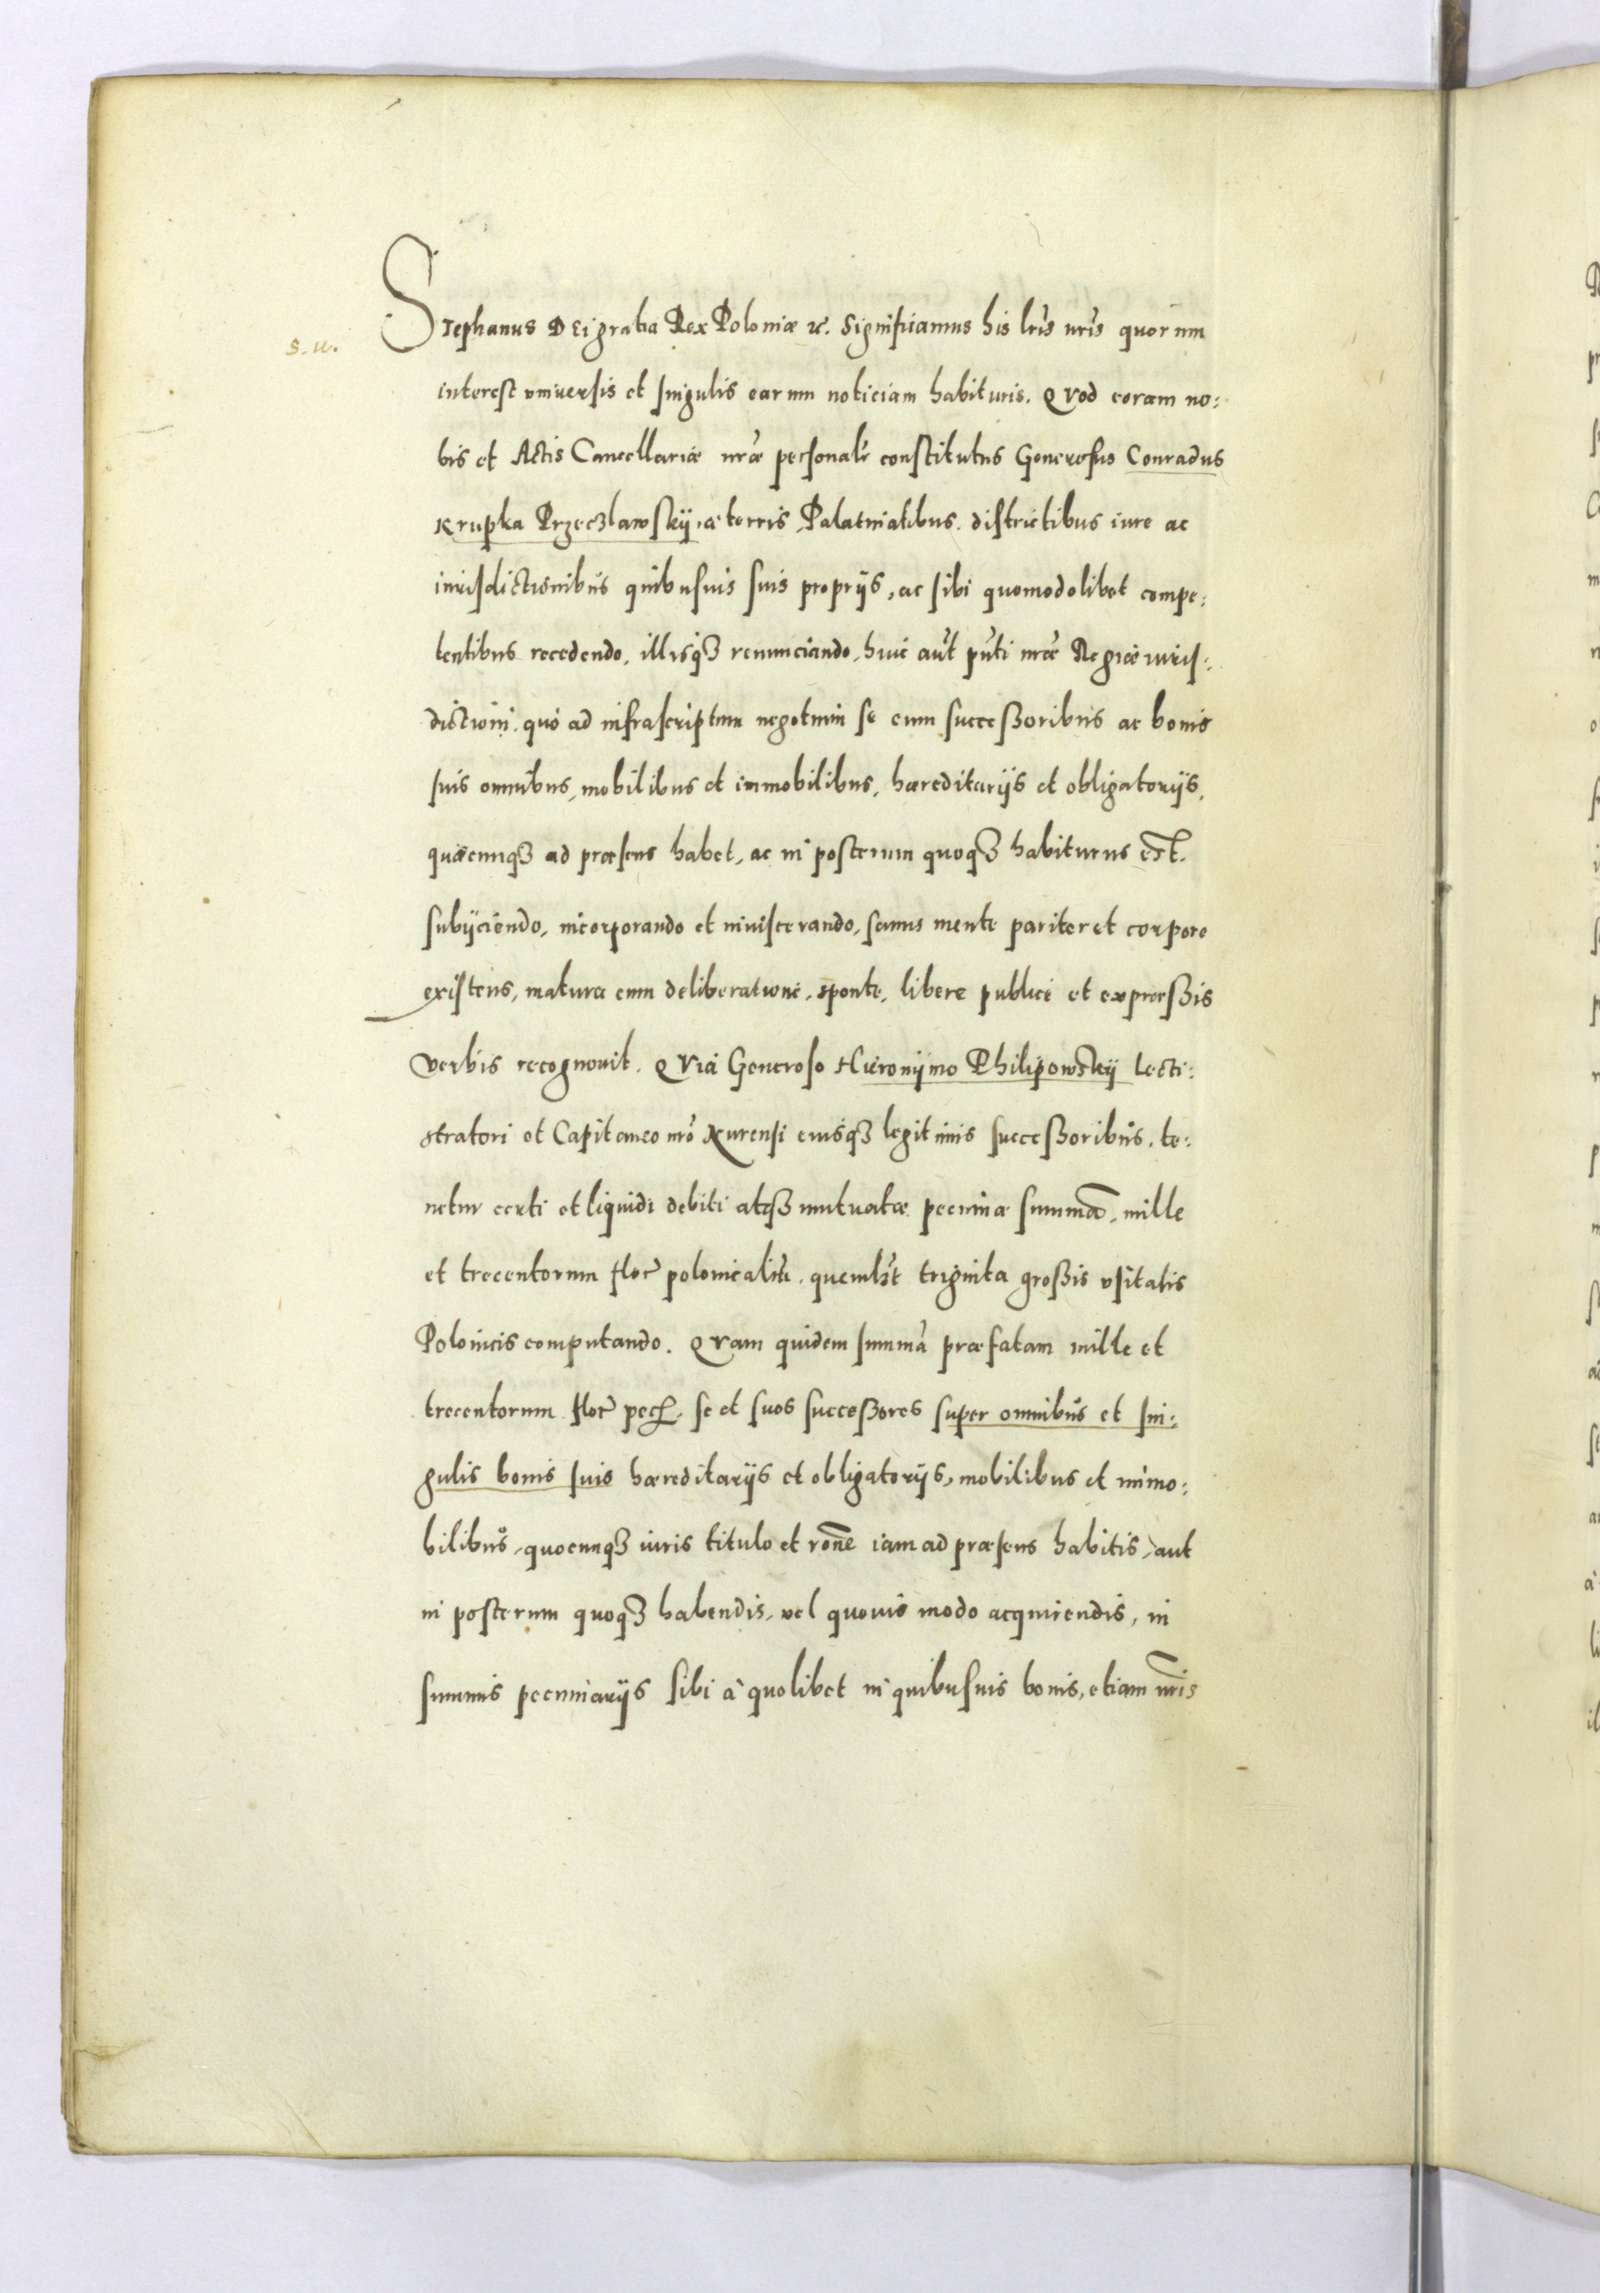 Stephanus DEi gratia Rex Poloniæ &c. Significamus his lr̃is nr̃is quorum
S. u.
interest vniuersis et singulis earum noticiam habituris. QVod coram no:
bis et Actis Cancellariæ nr̃æ personalr̃ constitutus Generosus Conradus
Krupka Przeczlawskÿ, a terris, Palatinatibus, districtibus iure ac
iurisdictionibus quibusuis suis proprijs, ac sibi quomodolibet compe:
tentibus recedendo, illisqȝ renunciando, huic aũt pñti nr̃æ Regiæ iuris:
dictioni, quo ad infrascriptum negotium se cum successoribus ac bonis
suis omnibus, mobilibus et immobilibus, hæreditarijs et obligatorijs,
quæcunqȝ ad præsens habet, ac in posterum quoqȝ habiturus est.
subijciendo, incorporando et inuiscerando, sanus mente pariter et corpore
existens, matura cum deliberatione, sponte, libere publice et expressis
verbis recognouit. QVia Generoso Hieronÿmo Philipowskÿ Lecti:
stratori et Capitaneo nr̃o Xurensi eiusqȝ legitimis successoribus, te:
netur certi et liquidi debiti atqȝ mutuatæ pecuniæ summam, mille
et trecentorum flor̃ polonicaliũ, quemlt̃ triginta grossis vsitatis
Polonicis computando. QVam quidem summã præfatam mille et
trecentorum flor̃ pec̃, se et suos successores super omnibus et sin:
gulis bonis suis hæreditarijs et obligatorijs, mobilibus et immo:
bilibus, quocunqȝ iuris titulo et rõne iam ad præsens habitis, aut
in posterum quoqȝ habendis, vel quouis modo acquirendis, in
summis pecuniarijs sibi à quolibet in quibusuis bonis, etiam nr̃is